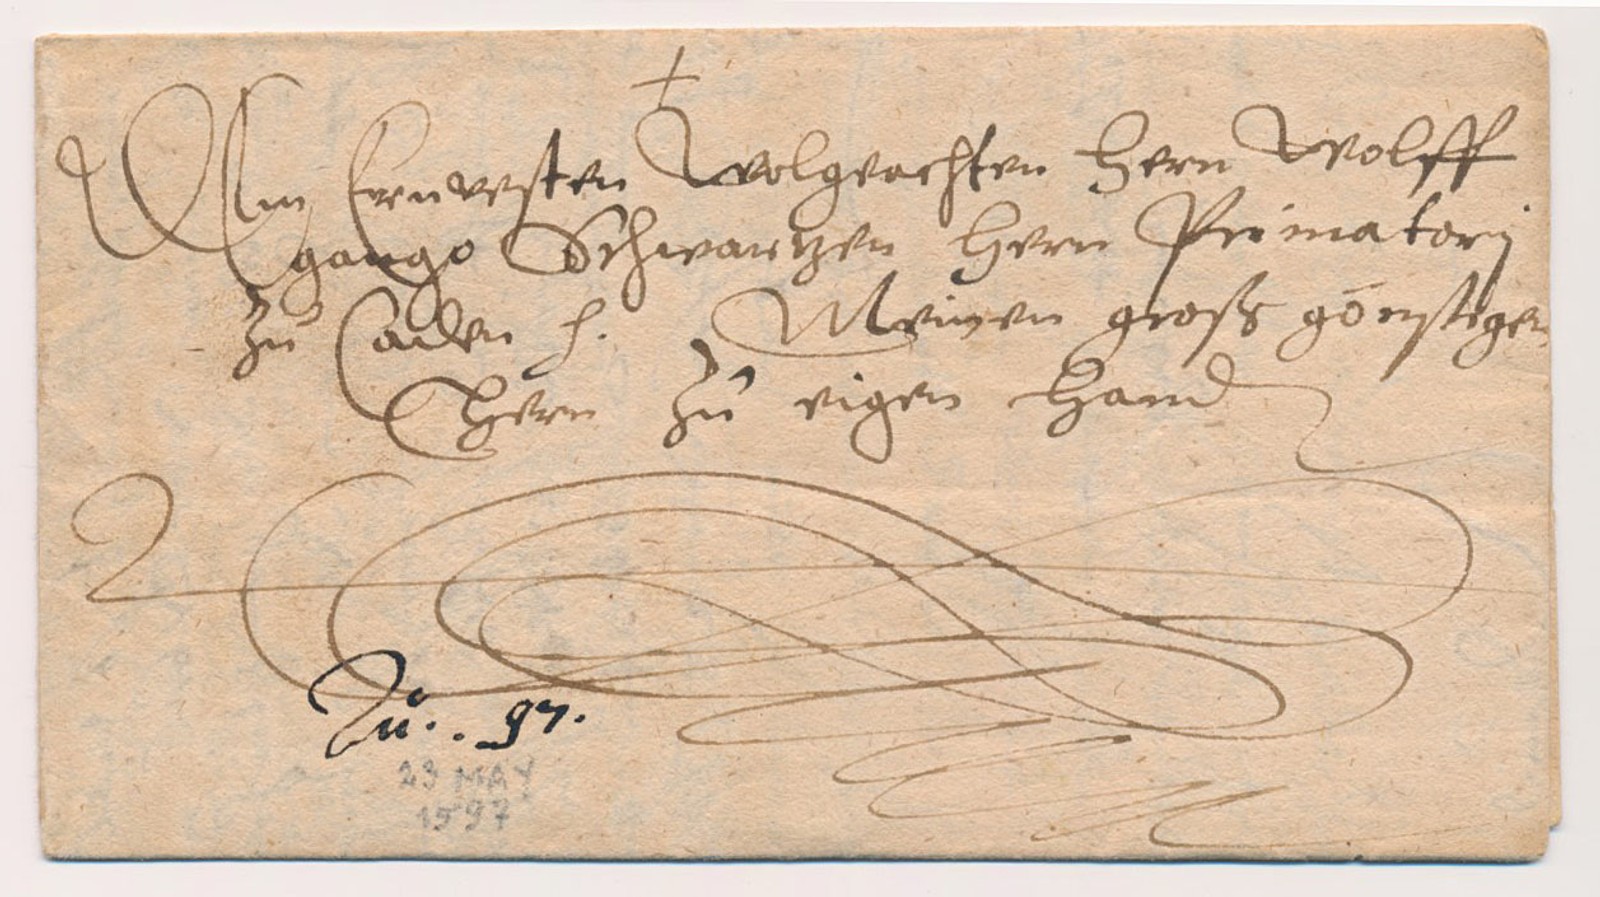 Dem Ernvesten Wolgeachten Hern Wolff
gango Schwartzen Hern Primatorj
zu Caden h. Meinen gross gönstigen
Hern zu eigen Hand
Zu. . 97.
23 MAY
1597